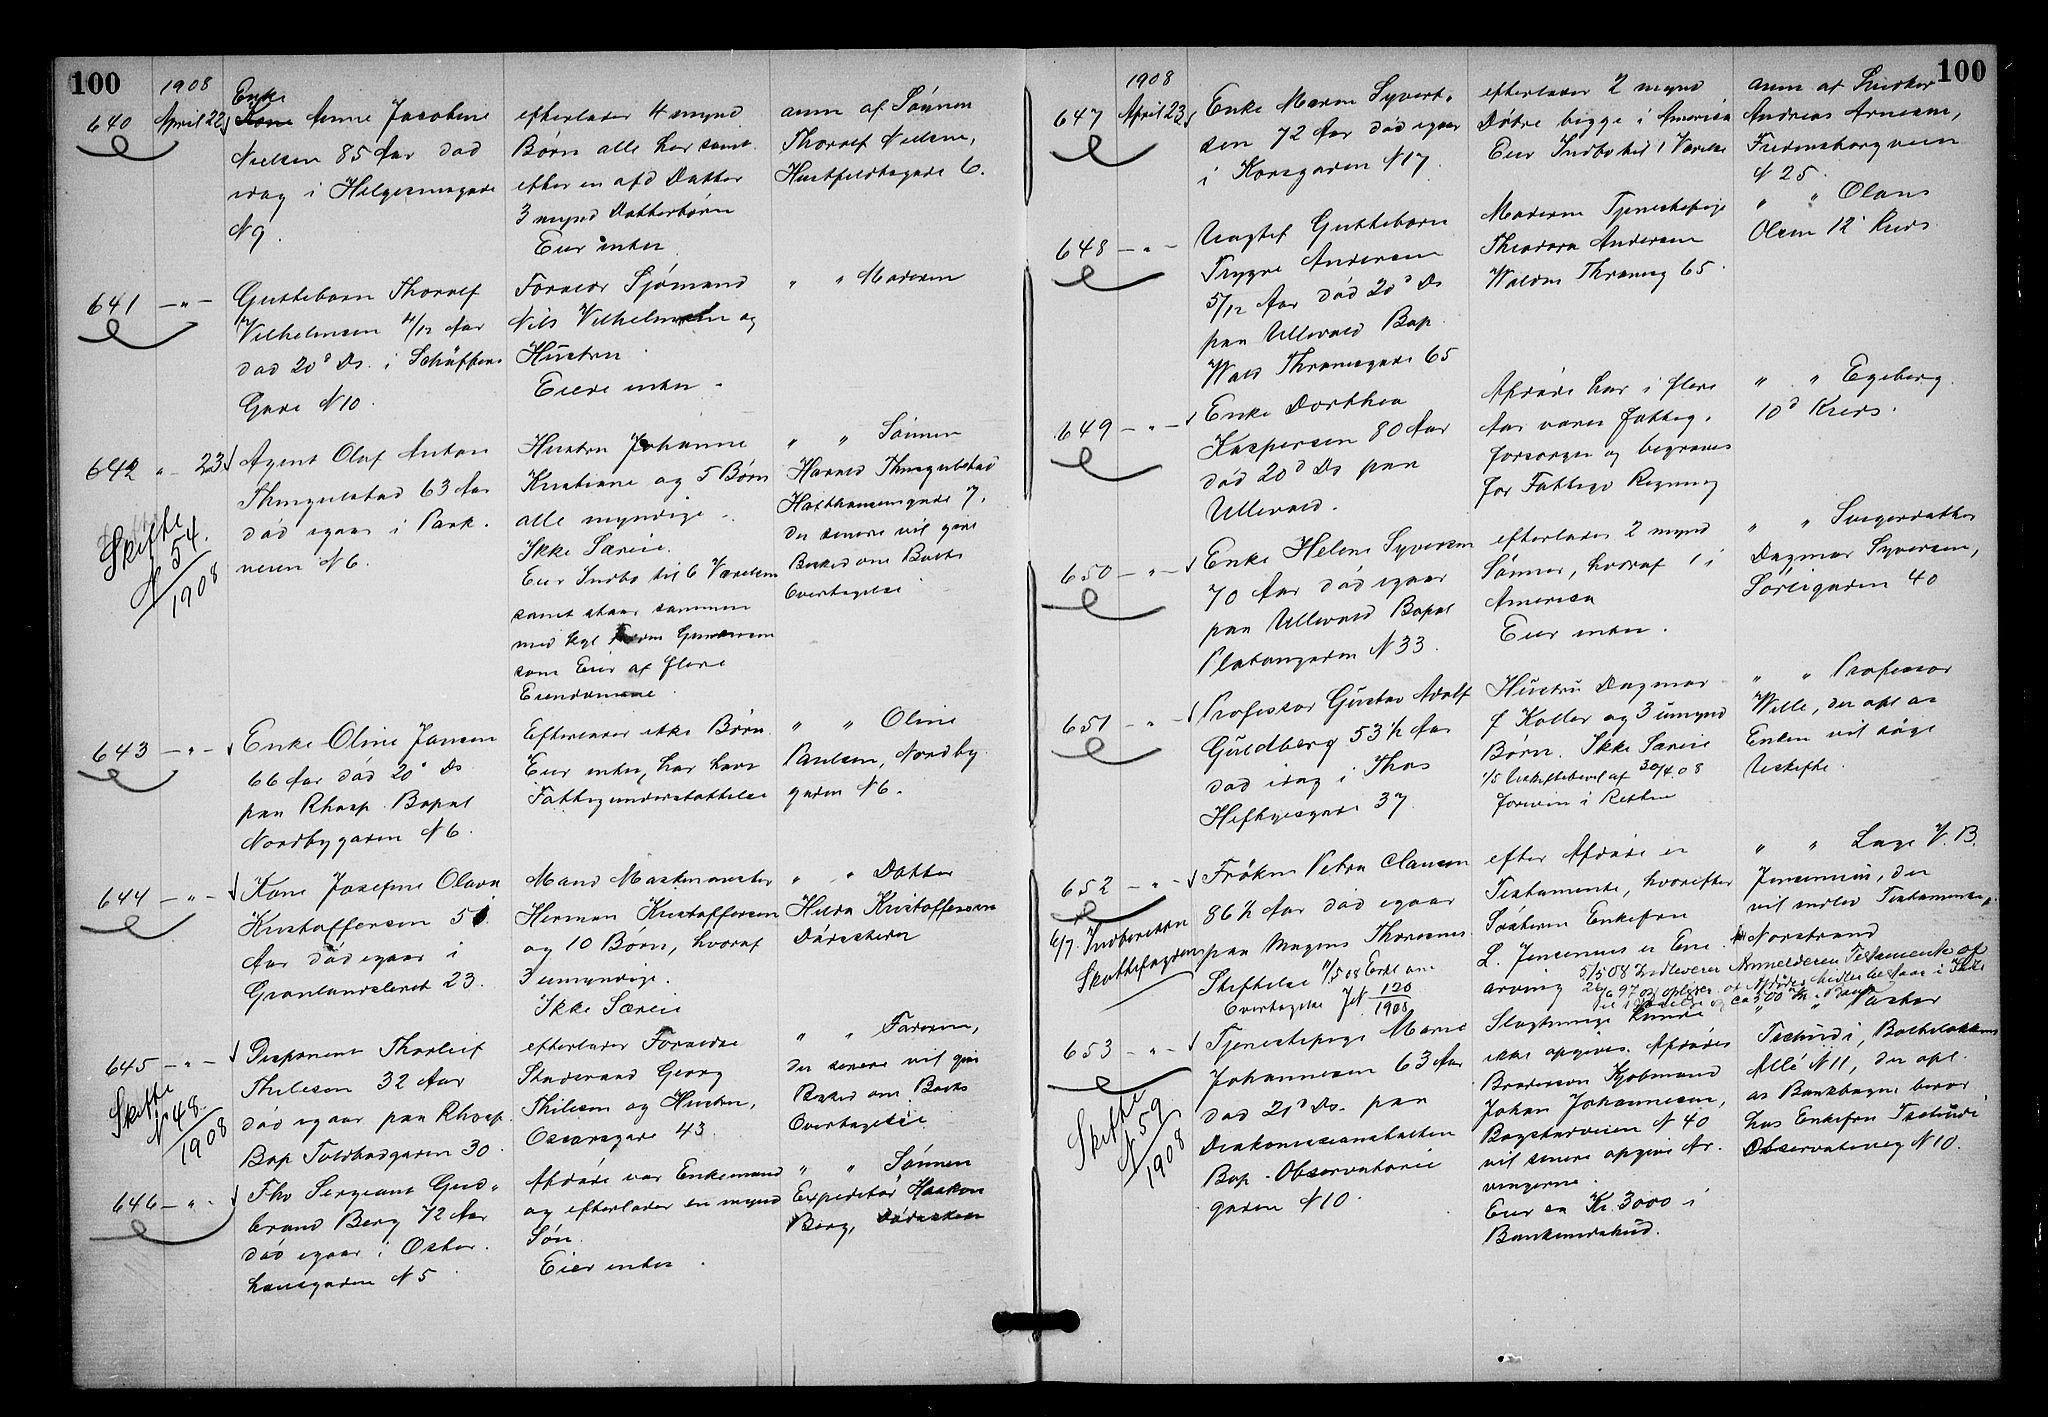 100
1908
640
April 22
Enke
Kone Anne Jacobine
Nielsen 85 Aar død
idag i Helgesensgade
N 9.
efterlader 4 mynd
Børn alle her samt
efter en afd Datter
3 mynd Datterbørn
Eier intet
anm af Sønnen
Thoralf Nielsen,
Huitfeldtsgade 6.
641 — " —
Guttebarn Thoralf
Vilhelmsen 4/12 Aar
død 20d Ds. i Schüssens
Gade N 10.
Forældre Sjømand
Nils Vilhelmsen og
Hustru.
Eiere intet
" " Moderen
642 " - 23
Skifte
N 54
1908
Agent Olaf Anton
Thingulstad 63 Aar
død igaar i Park-
veien N 6.
Hustru Johanne
Kristiane og 5 Børn
alle myndige
Ikke Særeie.
Eier Indbo til 6 Værelser
samt staar sammen
med
som Eier af flere
Eiendomme.
" " Sønnen
Harald Thingulstad
der senere vil give
Besked om Boets
Overtagelse
643 — " —
Enke Oline Jansen
66 Aar død 20d Ds
paa Rhosp. Bopæl
Nordbygaden N 6.
Efterlader ikke Børn.
Eier intet, har havt
Fattigunderstøttelse
" " Oline
Paulsen, Nordby
gaden N 6.
644 — " —
Kone Josefine Olava
Kristoffersen 51
Aar død igaar i
Grønlandsleret 23.
Mand Maskinmester
Herman Kristoffersen
og 10 Børn, hvoraf
3 umyndige.
Ikke Særeie
" " Datter
Hilda Kristoffersen
Dødsattesten
645 — " —
Skifte
N 48
1908
Disponent Thorleif
Thilesen 32 Aar
død igaar paa Rhosp.
Bop Toldbodgaden 30
efterlader Forældre
Georg
Thilesen og Hustru,
Oscarsgade 43.
" " Faderen,
der senere vil give
Besked om Boets
Overtagelse
646 — " —
Fhv Sergeant Gud-
brand Berg 72 Aar
død igaar i Oster-
hausgaden N 5
Afdøde var Enkemand
og efterlader en mynd
Søn.
Eier intet
" " Sønnen
Expeditør Haakon
Berg,
100
1908
647
April 23
Enke Maren Syvert-
sen 72 Aar død igaar
i Korsgaden N 17.
efterlader 2 mynd
Døtre begge i America
Eier Indbo til 1 Værelse
anm af Snedker
Andreas Arnesen,
Fredensborgveien
N 25.
648 — " —
Uægtef Guttebarn
Trygve Andersen
5/12 Aar død 20d Ds
paa Ullevaal Bop.
Wald Thranesgade 65
Moderen Tjenestepige
Theodora Andersen
Waldm Thranesg 65.
" " Olans
Olsen 12' Kreds
649 — " —
Enke Dorthea
Kaspersen 80 Aar
død 20d Ds paa
Ullevaal.
Afdøde har i flere
Aar været Fattig-
forsørget og begraves
for Fattigv Regning
" " Egeberg.
10d Kreds.
650 — " —
Enke Helene Syversen
70 Aar død igaar
paa Ullevaal Bopæl
Platougaden N 33.
efterlader 2 mynd
Sønner, hvoraf 1 i
America
Eier intet.
" " Svigerdatter
Dagmar Syversen,
Sorligaden 40
651 — " —
Professor Gustav Adolf
Guldberg 53 ½ Aar
død idag i Thos
Heftyesgade 37
Hustru Dagmar
f Koller og 3 umynd
Børn. Ikke Særeie
1/5 Uskiftebevil af 30/4 08
forevist i Retten
" " Professor
Wille, der opl at
Enken vil søge
Uskifte.
652 — " —
6/7. Indberetn
Skattefogden
Frøken Petra Clausen
86 ½ Aar død igaar
paa Magens Thoresens
Stiftelse 11/5 08 Erkl om
Overtagelse JN 120
1908
efter Afdøde er
Testamente, hvorefter
Søsteren Enkefru
L. Jensenius er Ene
arving
" " Læge V. B.
Jensenius, der
vil indlev Testamentet,
Norstrand
5/5 08 Indleverer Anmelderen Testamente af
653 — " —
Skifte
N 59
1908
Tjenestepige Marie
Johannesen 63 Aar
død 21d Ds. paa
Diakonisseanstalten
Bop. Observatorie
gaden N 10.
Slægtninge kunde
ikke opgives. Afdødes
Brodersøn Kjøbmand
Johan Johannesen,
Bogstadveien N 40
vil senere opgive Ar-
vingerne.
Eier ca Kr. 3000 i
Bankindskud.
" " Pastor
Tschudi, Bolteløkkens
Allé N 11, der opl.
at Bankbøgne beror
hos Enkefru Tschudi
Observatorieg N 10.